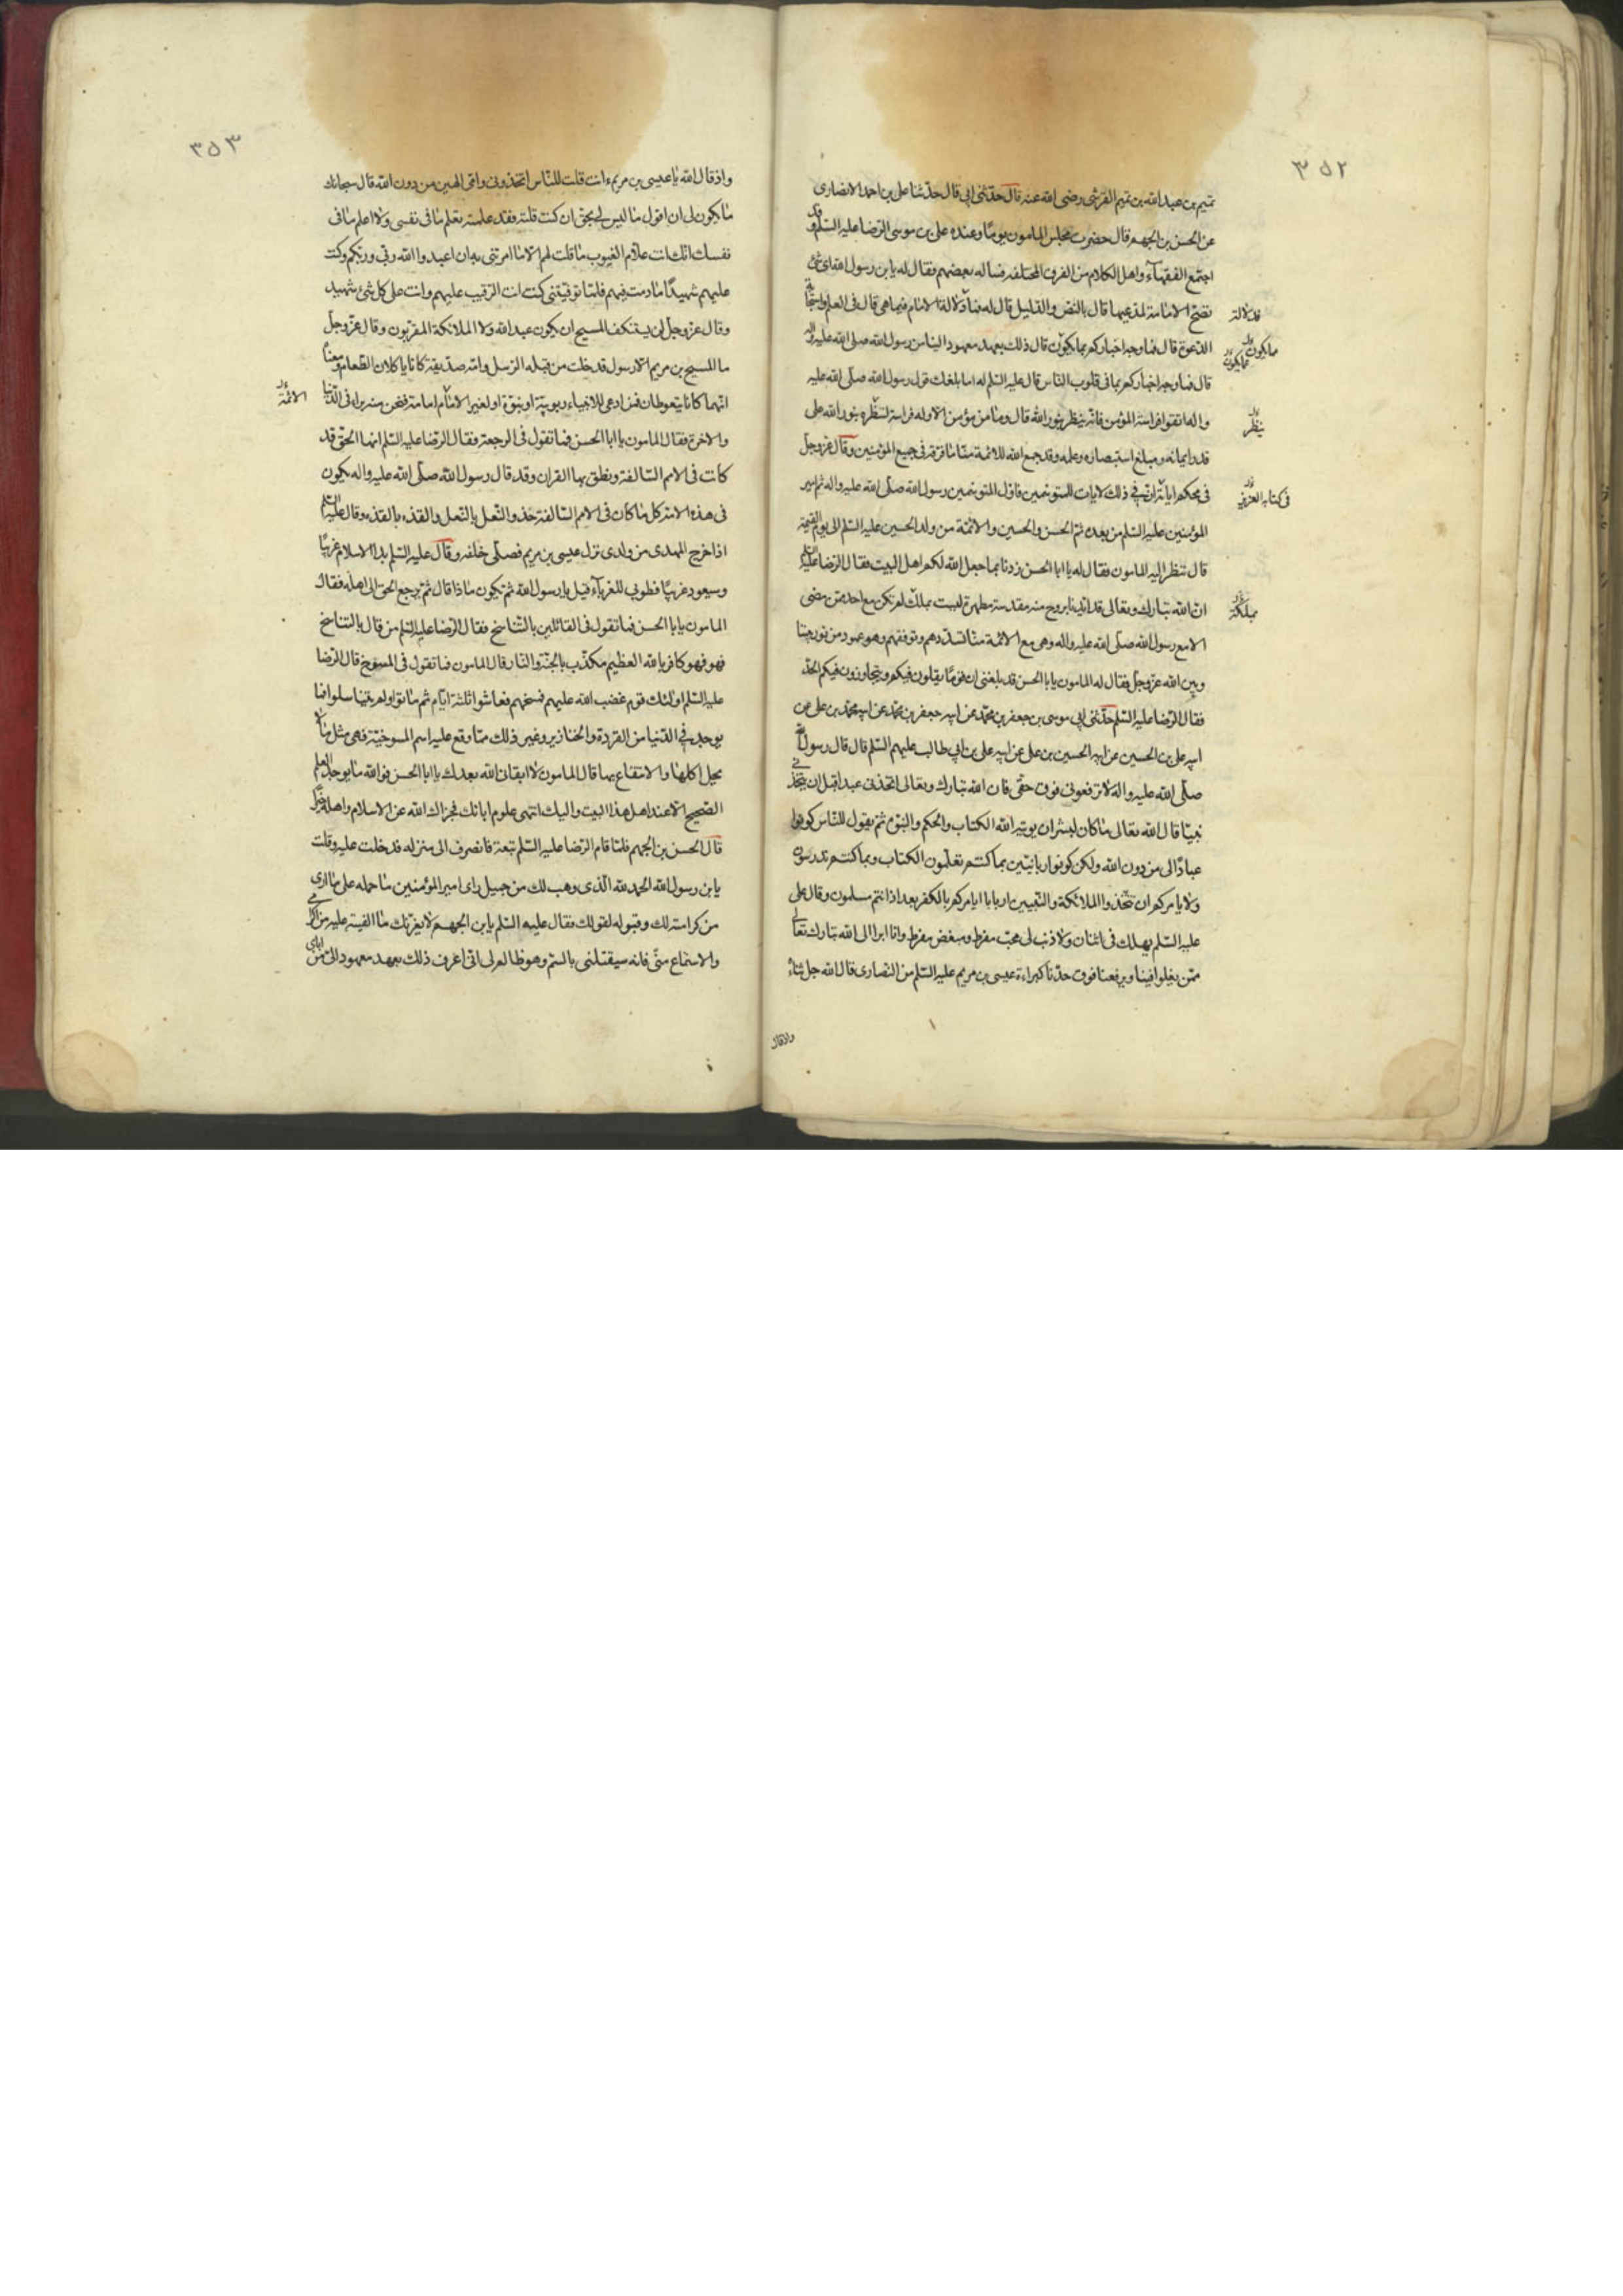 ٣٥٢
تميم بن عبد الله بن تميم القرشى رضى الله عنه قال حدثنى ابى قال حدثنا على بن احمد الانصارى
عن الحسن بن الجهم قال حضرت مجلس المامون يومًا وعنده على بن موسى الرضا عليه السلم وقد
اجتمع الفقهاء واهل الكلام من الفرق المختلفه فساله بعضهم فقال له يابن رسول الله باى شئ
تصح الامامة لمدعيها قال بالنص والدليل قال له فدلالة الامام فيما هى قال فى العلم واستجابة
الدعوة قال فما وجه اخباركم بما يكون قال ذلك بعهد معهود الينا من رسول الله صلى الله عليه واله
قال فما وجه اخباركم بما فى قلوب الناس قال عليه السلم له اما بلغك قول رسول الله صلى الله عليه
واله اتقوا فراسة المؤمن فانه ينظر بنور الله قال وما من مؤمن الا وله فراسة لنظره بنور الله على
قدر ايمانه ومبلغ استبصاره وعلمه وقد جمع الله للائمة منا ما فرقه فى جميع المؤمنين وقال عز وجل
فى محكم اياته ان فى ذلك لايات للمتوسمين فاول المتوسمين رسول الله صلى الله عليه واله ثم امير
المؤمنين عليه السلم من بعده ثم الحسن والحسين والائمة من ولد الحسين عليه السلم الى يوم القيمة
قال فنظر اليه المامون فقال له يا ابا الحسن زدنا مما جعل الله لكم اهل البيت فقال الرضا عليه السلم
ان الله تبارك وتعالى قد ايدنا بروح منه مقدسة مطهرة ليست بملك لم تكن مع احد ممن مضى
الا مع رسول الله صلى الله عليه واله وهى مع الائمة منا تسددهم وتوفقهم وهو عمود من نور بيننا
وبين الله عز وجل فقال له المامون يا با الحسن قد بلغنى ان قومًا يغلون فيكم ويتجاوزون فيكم الحد
فقال الرضا عليه السلم حدثنى ابى موسى بن جعفر عن ابيه جعفر بن محمد عن ابيه محمد بن على عن
ابيه على بن الحسين عن ابيه الحسين بن على عن ابيه على بن ابى طالب عليهم السلم قال قال رسول الله
صلى الله عليه واله لا ترفعونى فوق حقى فان الله تبارك وتعالى اتخذنى عبدا قبل ان يتخذنى
نبيًا قال الله تعالى ما كان لبشر ان يوتيه الله الكتاب والحكم والنبوة ثم يقول للناس كونوا
عبادًا لى من دون الله ولكن كونوا ربانيين بما كنتم تعلمون الكتاب وبما كنتم تدرسون
ولا يامركم ان تتخذوا الملائكة والنبيين اربابا ايامركم بالكفر بعد اذ انتم مسلمون وقال على
عليه السلم يهلك فى اثنان ولا ذنب لى محب مفرط ومبغض مفرط وانا ابرا الى الله تبارك وتعالى
ممن يغلوا فينا ويرفعنا فوق حدنا كبراءة عيسى بن مريم عليه السلم من النصارى قال الله جل ثناؤه
فدلالة
ما يكون
بما يكون
ينظر
فى كتابه العزيز
بملكة
واذ قال
٣٥٣
واذ قال الله يا عيسى بن مريم ءانت قلت للناس اتخذونى وامى الهين من دون الله قال سبحانك
ما يكون لى ان اقول ما ليس لى بحق ان كنت قلته فقد علمته تعلم ما فى نفسى ولا اعلم ما فى
نفسك انك انت علام الغيوب ما قلت لهم الا ما امرتنى به ان اعبدوا الله ربى وربكم وكنت
عليهم شهيدًا ما دمت فيهم فلما توفيتنى كنت انت الرقيب عليهم وانت على كل شئ شهيد
وقال عز وجل لن يستنكف المسيح ان يكون عبدا لله ولا الملائكة المقربون وقال عز وجل
ما المسيح بن مريم الا رسول قد خلت من قبله الرسل وامه صديقة كانا ياكلان الطعام ومعناه
انهما كانا يتغوطان فمن ادعى للانبياء ربوبية او نبوة او لغير الامام امامة فنحن منه براء فى الدنيا
والاخرة فقال المامون يا ابا الحسن فما تقول فى الرجعة فقال الرضا عليه السلم انها الحق قد
كانت فى الامم السالفة ونطق بها القران وقد قال رسول الله صلى الله عليه واله يكون
فى هذه الامة كل ما كان فى الامم السالفة حذو النعل بالنعل والقذه بالقذه وقال عليه السلم
اذا خرج المهدى من ولدى نزل عيسى بن مريم فصلى خلفه وقال عليه السلم بدا الاسلام غريبًا
وسيعود غريبًا فطوبى للغرباء قيل يا رسول الله ثم يكون ماذا قال ثم يرجع الحق الى اهله فقال
المامون يا با الحسن فما تقول فى القائلين بالتناسخ فقال الرضا عليه السلم من قال بالتناسخ
فهو فهو كافر بالله العظيم مكذب بالجنة والنار قال المامون فما تقول فى المسوخ قال الرضا
عليه السلم اولئك قوم غضب الله عليهم فمسخهم فعاشوا ثلثة ايام ثم ماتوا ولم يتناسلوا فما
يوجد فى الدنيا من القردة والخنازير وغير ذلك مما وقع عليه اسم المسوخية فهى مثل ما لا
يحل اكلها والانتفاع بها قال المامون لا ابقان الله بعدك يا ابا الحسن فوالله ما يوجد العلم
الصحيح الا عند اهل هذا البيت واليك انتهى علوم ابائك فجزاك الله عن الاسلام واهله خيرًا
قال الحسن بن الجهم فلما قام الرضا عليه السلم تبعته فانصرف الى منزله فدخلت عليه وقلت
يابن رسول الله الحمد لله الذى وهب لك من جميل راى امير المؤمنين ما حمله على ما ارى
من كرامته لك وقبوله لقولك فقال عليه السلم يابن الجهم لا يغرنك ما الفيته عليه من اكرامى
والاستماع منى فانه سيقتلنى بالسم وهو ظالم لى انى اعرف ذلك بعهد معهود الى من ابائى
الائمة